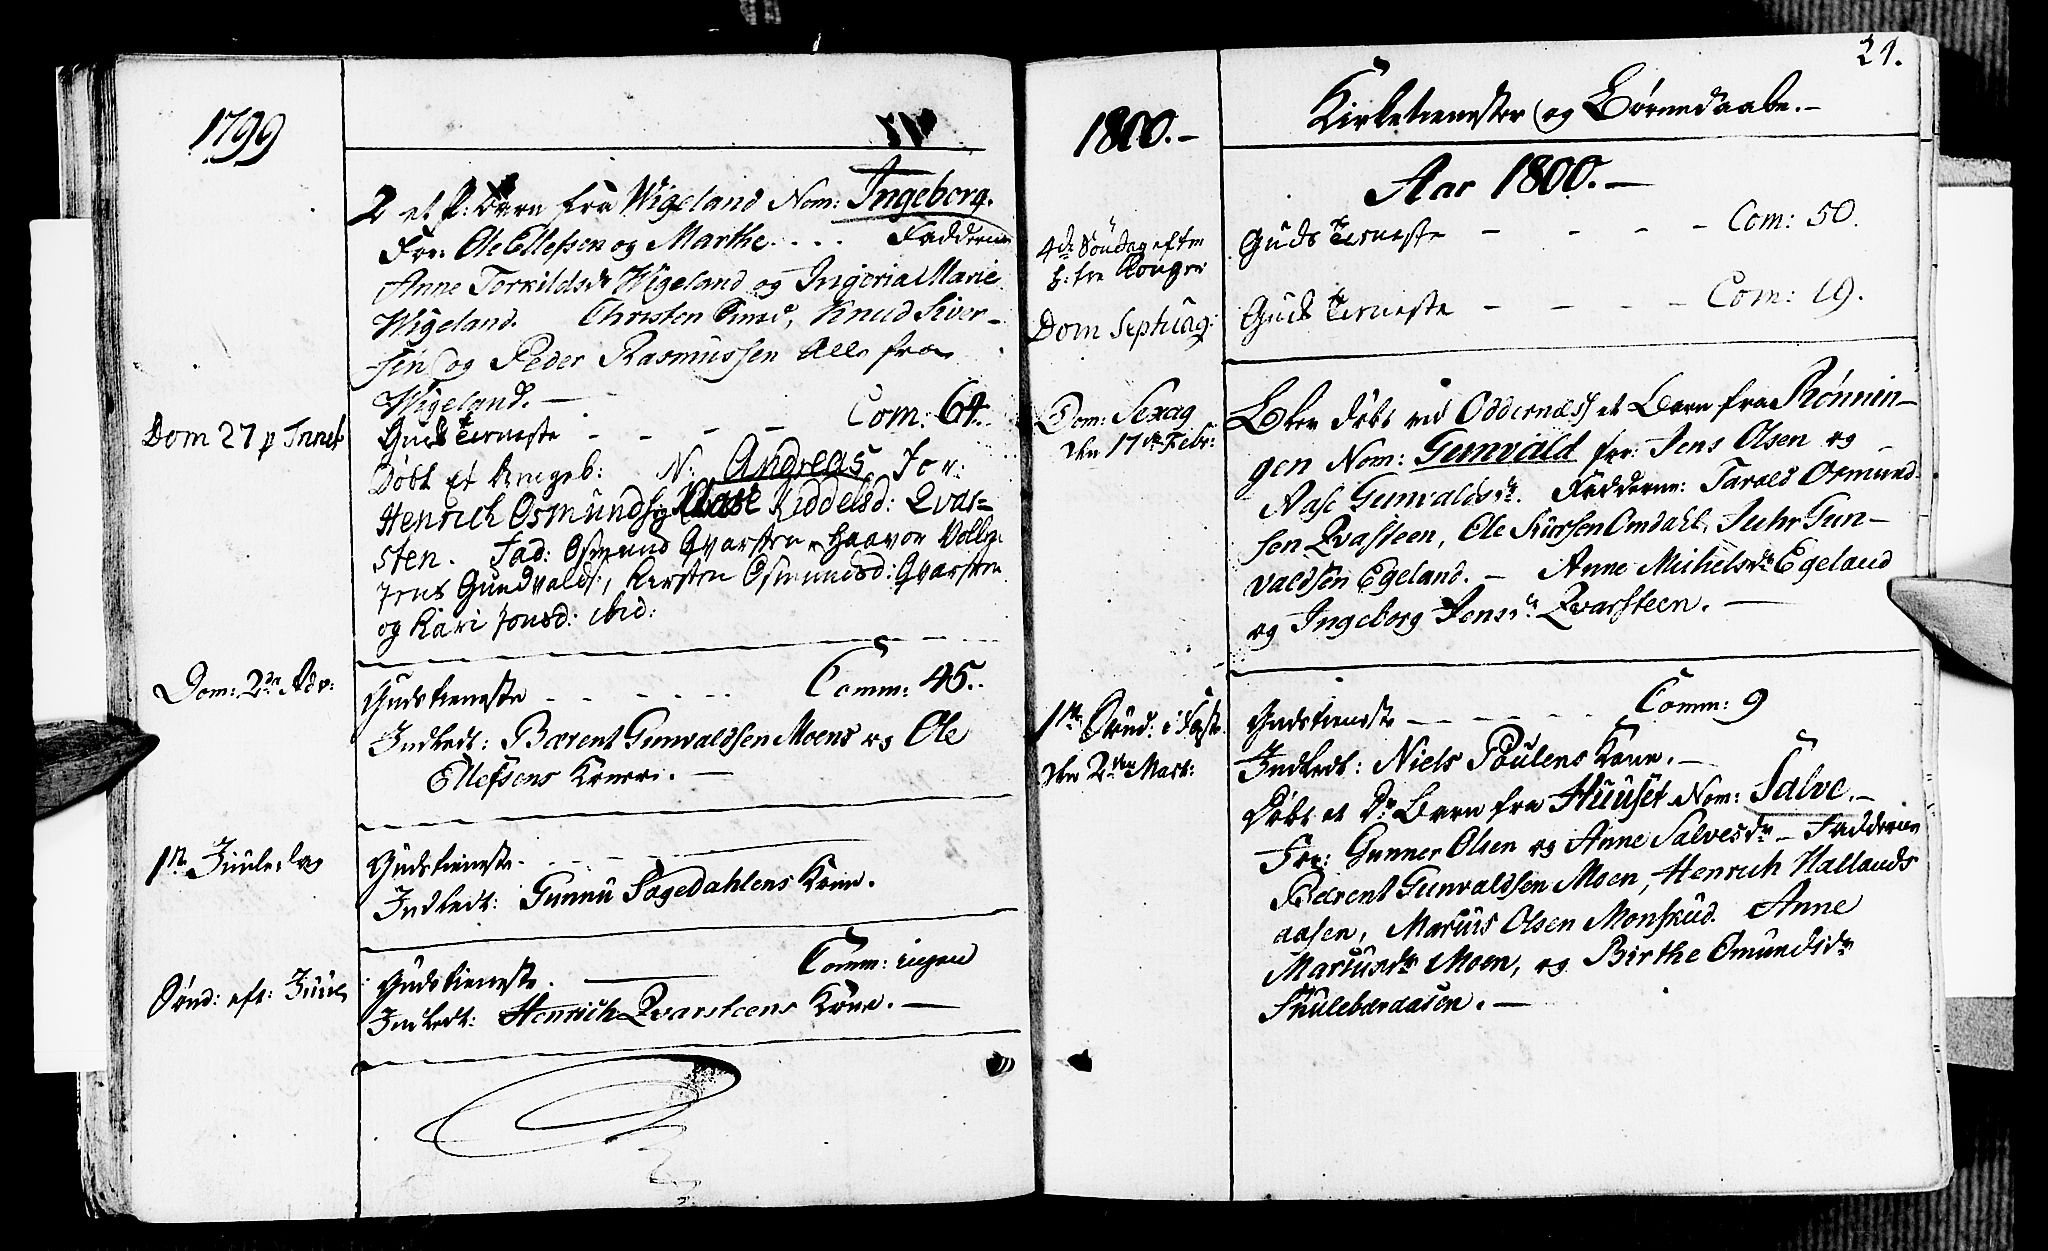 1799
2 et Barn fra Wigeland Nom: Ingeborg.
For: Ole Ellefsen og Marthe . . . . Fadderne
Anne Torkildsdr Wigeland og Ingeria Marie
Wigeland. Christen Smed, Knud Siver-
sen og Peder Rasmussen Alle fra
Wigeland. —
Dom 27 p Trinit
Guds Tieneste - - - - Com: 64.
Døbt Et b: N: Andreas For:
Henrich Osmunds: og Aase Kiddelsd: Qvar-
sten. Fad: Osmund Qvarsten, Haavor
Jens Gundvalds:, Kersten Osmundsd: Qvarsten
og Kari Jonsd: ibid:
Dom: 2den Adv:
Gudstieneste - - - - - - Comm: 45.
Indledt: Bærent Gunvaldsen Moens og Ole
Ellefsens Koner. —
1ste Juuledag
Gudstieneste - - - - -
Indledt: Gunnu Sagedahlens Kone.
Sønd: eft: Juul
Gudstieneste. —— Comm: ingen
Indledt: Henrich Qvarsteens Kone. —
21.
1800. -
Kirketienester og Børnedaabe. -
Aar 1800. —
4de Søndag efter
h: tre Konger
Guds Tieneste - - - - Com: 50.
Dom Septuag:
Guds Tieneste - - - - - Com: 19.
Dom: Sexag
den 17de Febr:
Blev døbt ved Oddernæss et Barn fra Rønnin-
gen Nom: Gunvald for: Jens Olsen og
Aase Gunvaldsdr. Fadderne: Tarald Osmund-
sen Qvasteen, Ole Siursen Omdahl, Juhr Gun-
valdsen Egeland. — Anne Michelsdr Egeland
og Ingeborg Jensdr Qvarsteen. —
1ste Sønd: i Faste
den 2den Mart:
Gudstieneste - - - - - - Comm: 9
Indledt: Niels Poulens Kone. -
Døbt et Dr Barn fra Huuset Nom: Salve. -
For: Gunner Olsen og Anne Salvesdr - Fadderne
Bærent Gunvaldsen Moen, Henrich Hallands
aasen, Marcus Olsen Monskud. Anne
Marcusdr Moen, og Birthe Omundsdr
Skulebæraasen. —